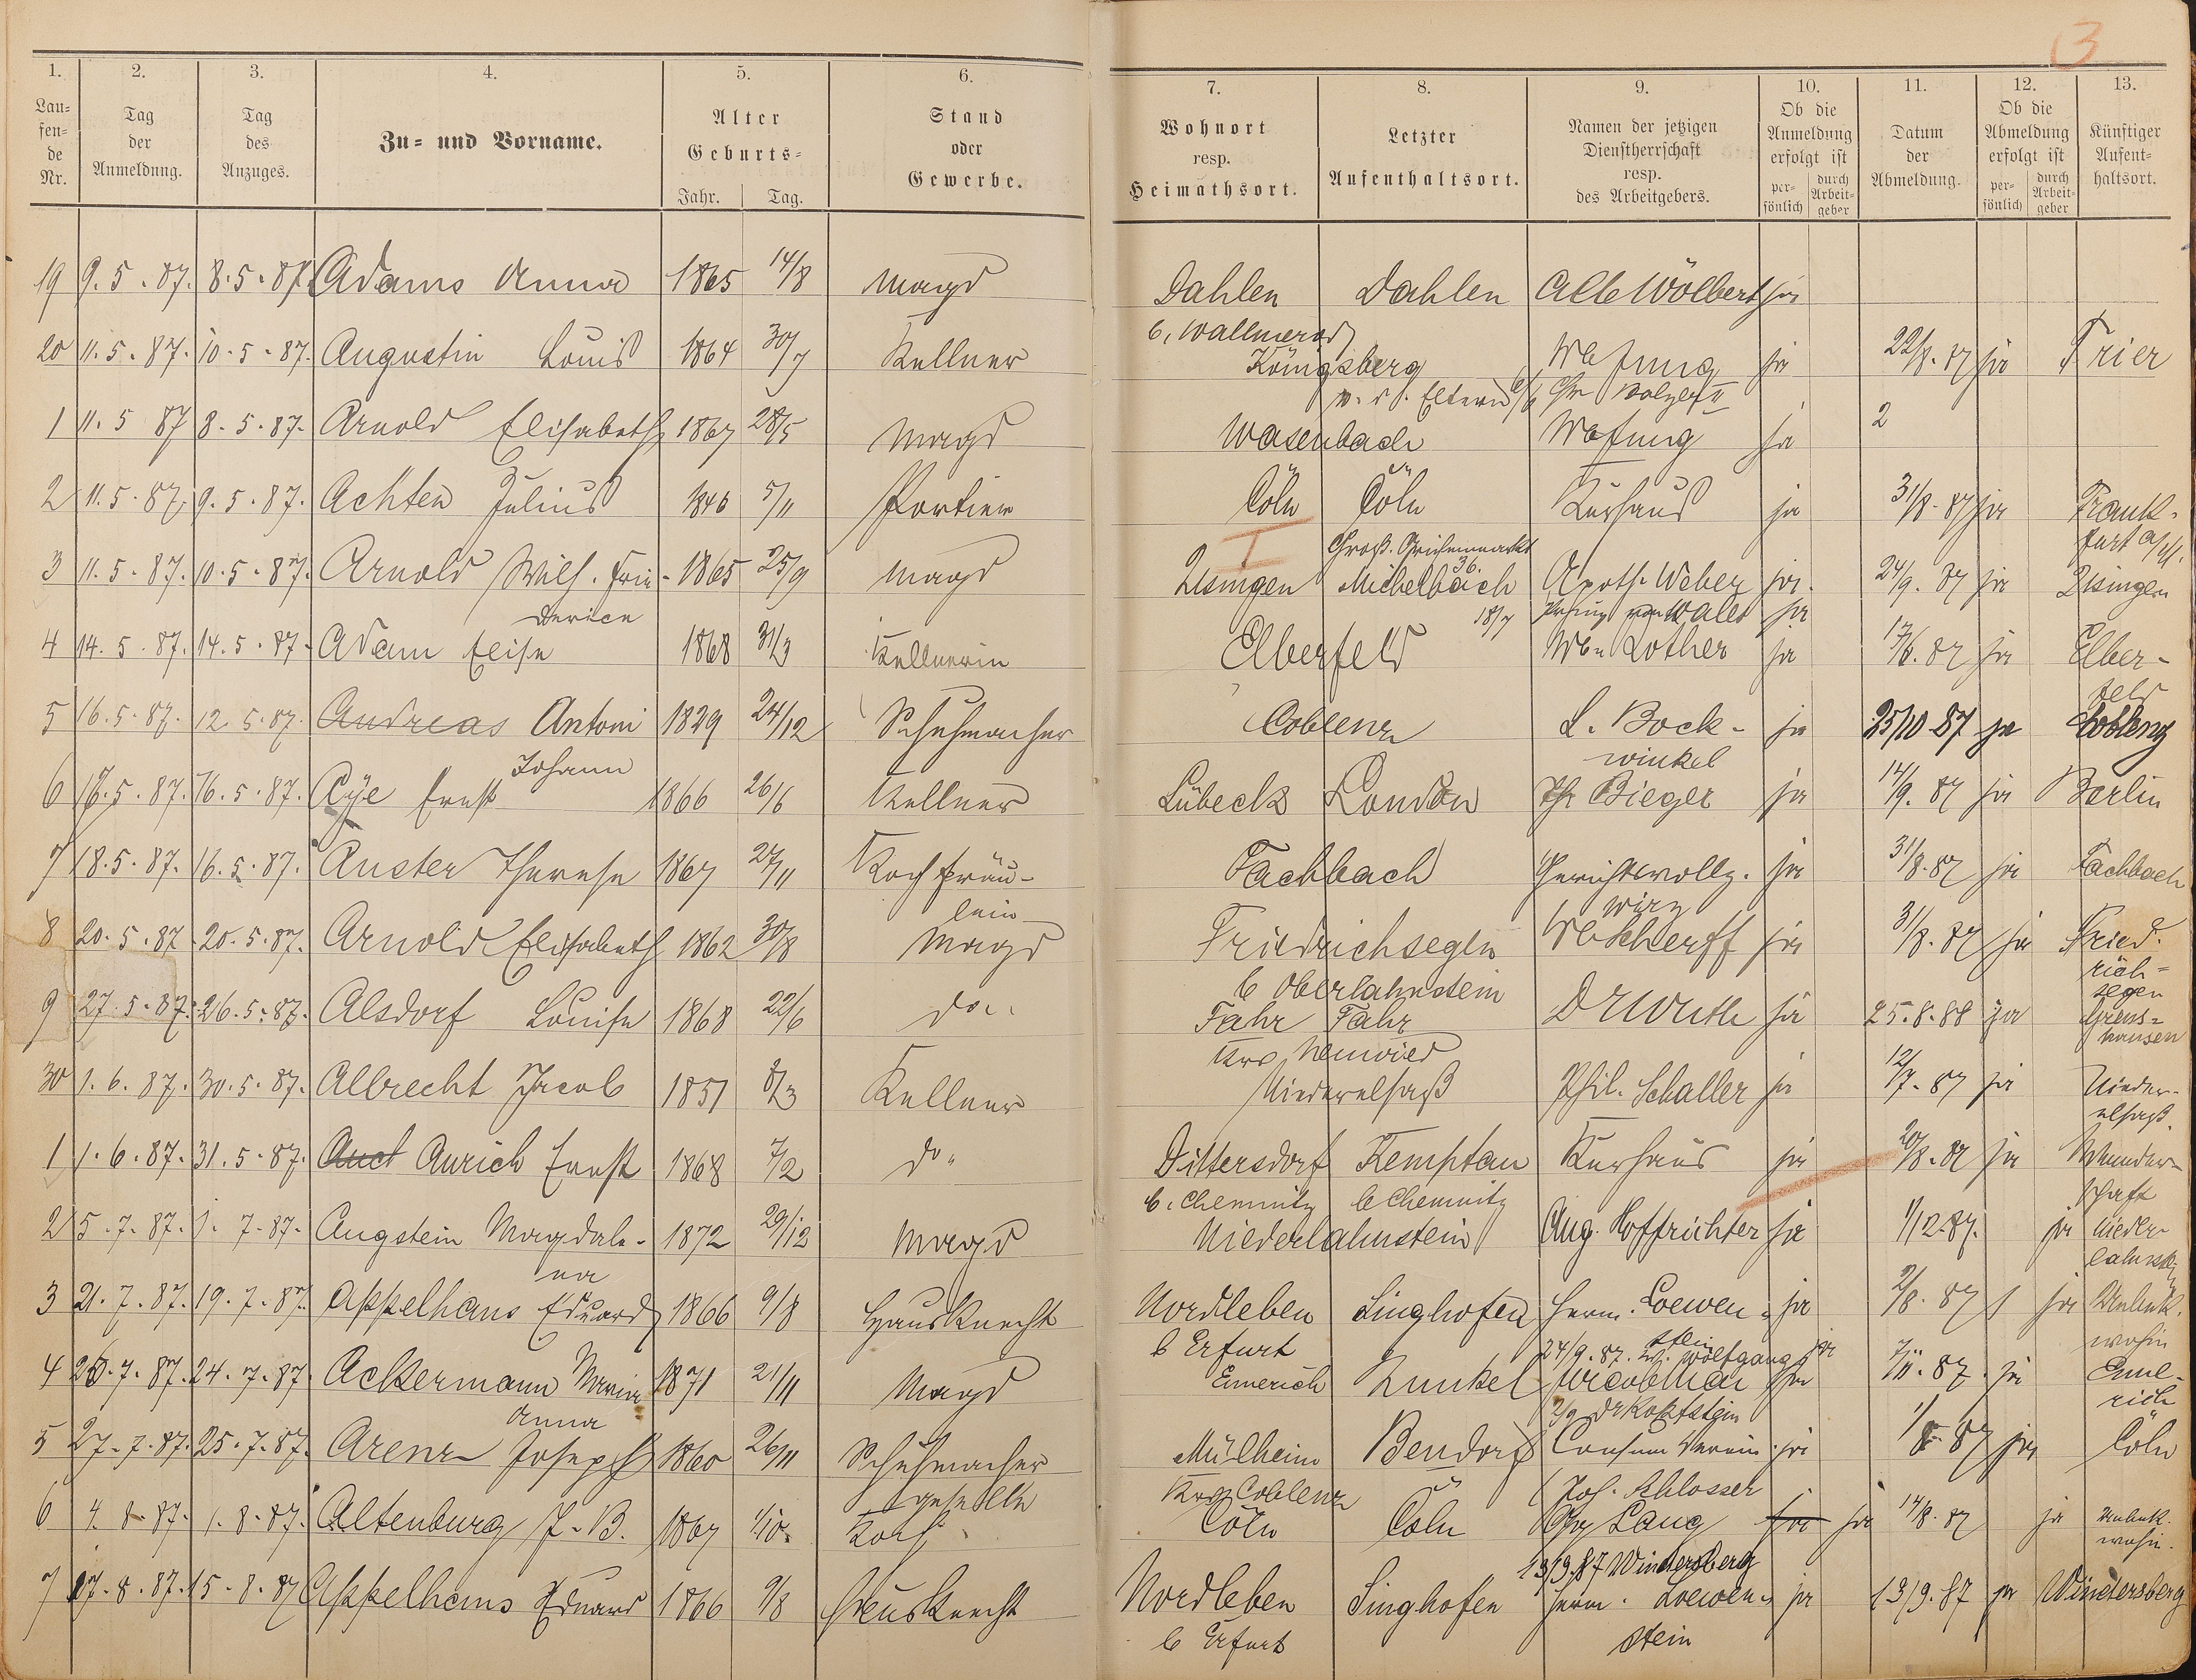 3
1. 2. 3. 4. 5. 6. 7. 8. 9. 10. 11. 12. 13.
Lau=
fen=
de
Nr.
Tag
der
Anmeldung.
Tag
des
Anzuges.
Zu= und Vorname.
Alter
Geburts=
Jahr. Tag.
Stand
oder
Gewerbe.
Wohnort
resp.
Heimathsort.
Letzter
Aufenthaltsort.
Namen der jetzigen
Dienstherrschaft
resp.
des Arbeitgebers.
Ob die
Anmeldung
erfolgt ist
per=
sönlich
durch
Arbeit=
geber
Datum
der
Abmeldung.
Ob die
Abmeldung
erfolgt ist
per=
sönlich
durch
Arbeit=
geber
Künftiger
Aufent=
haltsort.
19 9.5.87. 8.5.87. Adams Anna 1865 14/8 Magd Dahlen Dahlen Alb Wölbert ja
b. Wallmerod
20 11.5.87. 10.5.87. Augustin Louis 1864 30/7 Kellner Königsberg ja 22/8.87 ja Trier
v. d. Eltern
1 11.5 87 8.5.87. Arnold Elisabeth 1867 28/5 Magd Wasenbach ja 2
2 11.5.87. 9.5.87. Achten Julius 1846 5/11 Portier Cöln Cöln Kurhaus ja 31/8.87 ja Frank-
furt a/M.
I Groß. Griechenmarkt
36.
3 11.5.87. 10.5.87. Arnold Wilh. Frie- 1865 25/9 Magd Usingen Michelbach Apoth. Weber ja. 24/9.87 ja Usingen
derike 18/7 Prinz von Wales ja
4 14.5.87. 14.5.87. Adam Elise 1868 31/3 Kellnerin Elberfeld Wb. Lother ja 17/6.87 ja Elber-
feld
5 16.5.87. 12.5.87. Andreas Antoni 1829 24/12 Schuhmacher Coblenz L. Bock- ja 25/10 87 ja Coblenz
Johann winkel
6 18.5.87. 16.5.87. Aye Ernst 1866 26/6 Kellner Lübeck London Ph Bieger ja 14/9.87 ja Berlin
7 18.5.87. 16.5.87. Auster Therese 1867 27/11 Kochfräu- Fachbach Gerichtsvollz. ja 31/8.87 ja Fachbach
lein Wirz
8 20.5.87 20.5.87. Arnold Elisabeth 1862 30/8 Magd Friedrichsegen Wb Scherff ja 31/8.87 ja Fried.
rich=
segen
b Oberlahnstein
9 27.5.87. 26.5.87. Alsdorf Louise 1868 22/6 do. Fahr Fahr ja 25.8.88 ja Grens=
hausen
Krs Neuwied
30 1.6.87. 30.5.87. Albrecht Jacob 1851 8/3 Kellner Niederelsaß Phil. Schaller ja 12/7.87 ja Nieder-
elsaß.
1 1.6.87. 31.5.87. Auct Aurich Ernst 1868 7/2 do. Dittersdorf Kemptau Kurhaus ja 20/8.87 ja Wander-
schaft
b. Chemnitz b Chemnitz
2 5.7.87. 1.7.87. Augstein Magdale- 1872 29/12 Magd Niederlahnstein Aug. Hoffrichter ja 1/12.87. ja Nieder-
lahnstein
na
3 21.7.87. 19.7.87. Appelhans Eduard 1866 9/8 Hausknecht Nordleben Singhofen Herm. Loewen= ja 2/8.87 ja Unbek.
wohin
b Erfurt stein
24/9.87. Wolfgang ja
4 26.7.87. 24.7.87. Ackermann Maria 1871 21/11 Magd Emerich Kunkel ja 7/11.87. ja Emme-
rich
Anna
5 27.7.87. 25.7.87. Arenz Joseph 1860 26/11 Schuhmacher Mülheim Bendorf Consum Verein. ja 1/8.87 ja Cöln
geselle Krs Coblenz (Jos. Schlosser
6 4.8.87. 1.8.87. Altenburg J.B. 1867 1/10. Koch Cöln Cöln Chr Lang ja ja 14/8.87 ja unbek.
wohin.
13/9.87 Windersberg
7 17.8.87. 15.8.87 Appelhans Eduard 1866 9/8 Hausknecht Nordleben Singhofen Herm. Loewen= ja 13/9.87 ja Windersberg
b Erfurt stein